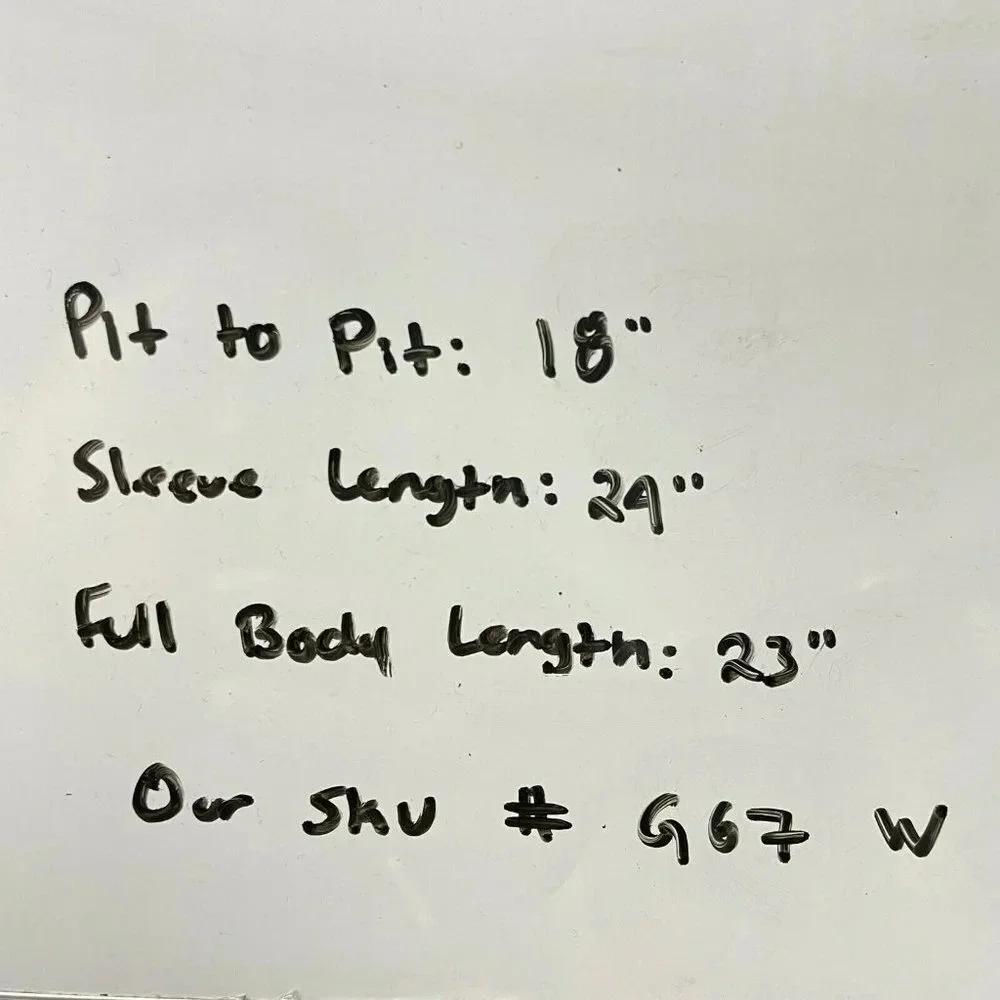 Pit to Pit: 18"
Sleeve Length: 24"
Full Body Length: 23"
Our SKU # G67 W